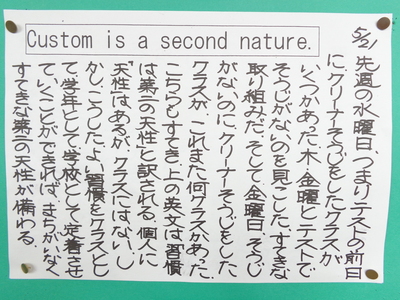 Custom is a second nature.
5/21 先週の水曜日、つまりテストの前日
に、クリーナーそうじをしたクラスが
いくつかあった。木・金曜とテストで
そうじがないのを見こした、すてきな
取り組みだ。そして、金曜日、そうじ
がないのに、クリーナーそうじをした
クラスが、これまた何クラスかあった。
こちらもすてき。上の英文は「習慣
は第二の天性」と訳される。個人に
「天性」はあるが、クラスにはない。し
かし、こうした、よい習慣をクラスとし
て、学年として、学校として定着させ
ていくことができれば、まちがいなく
すてきな第二の天性が備わる。